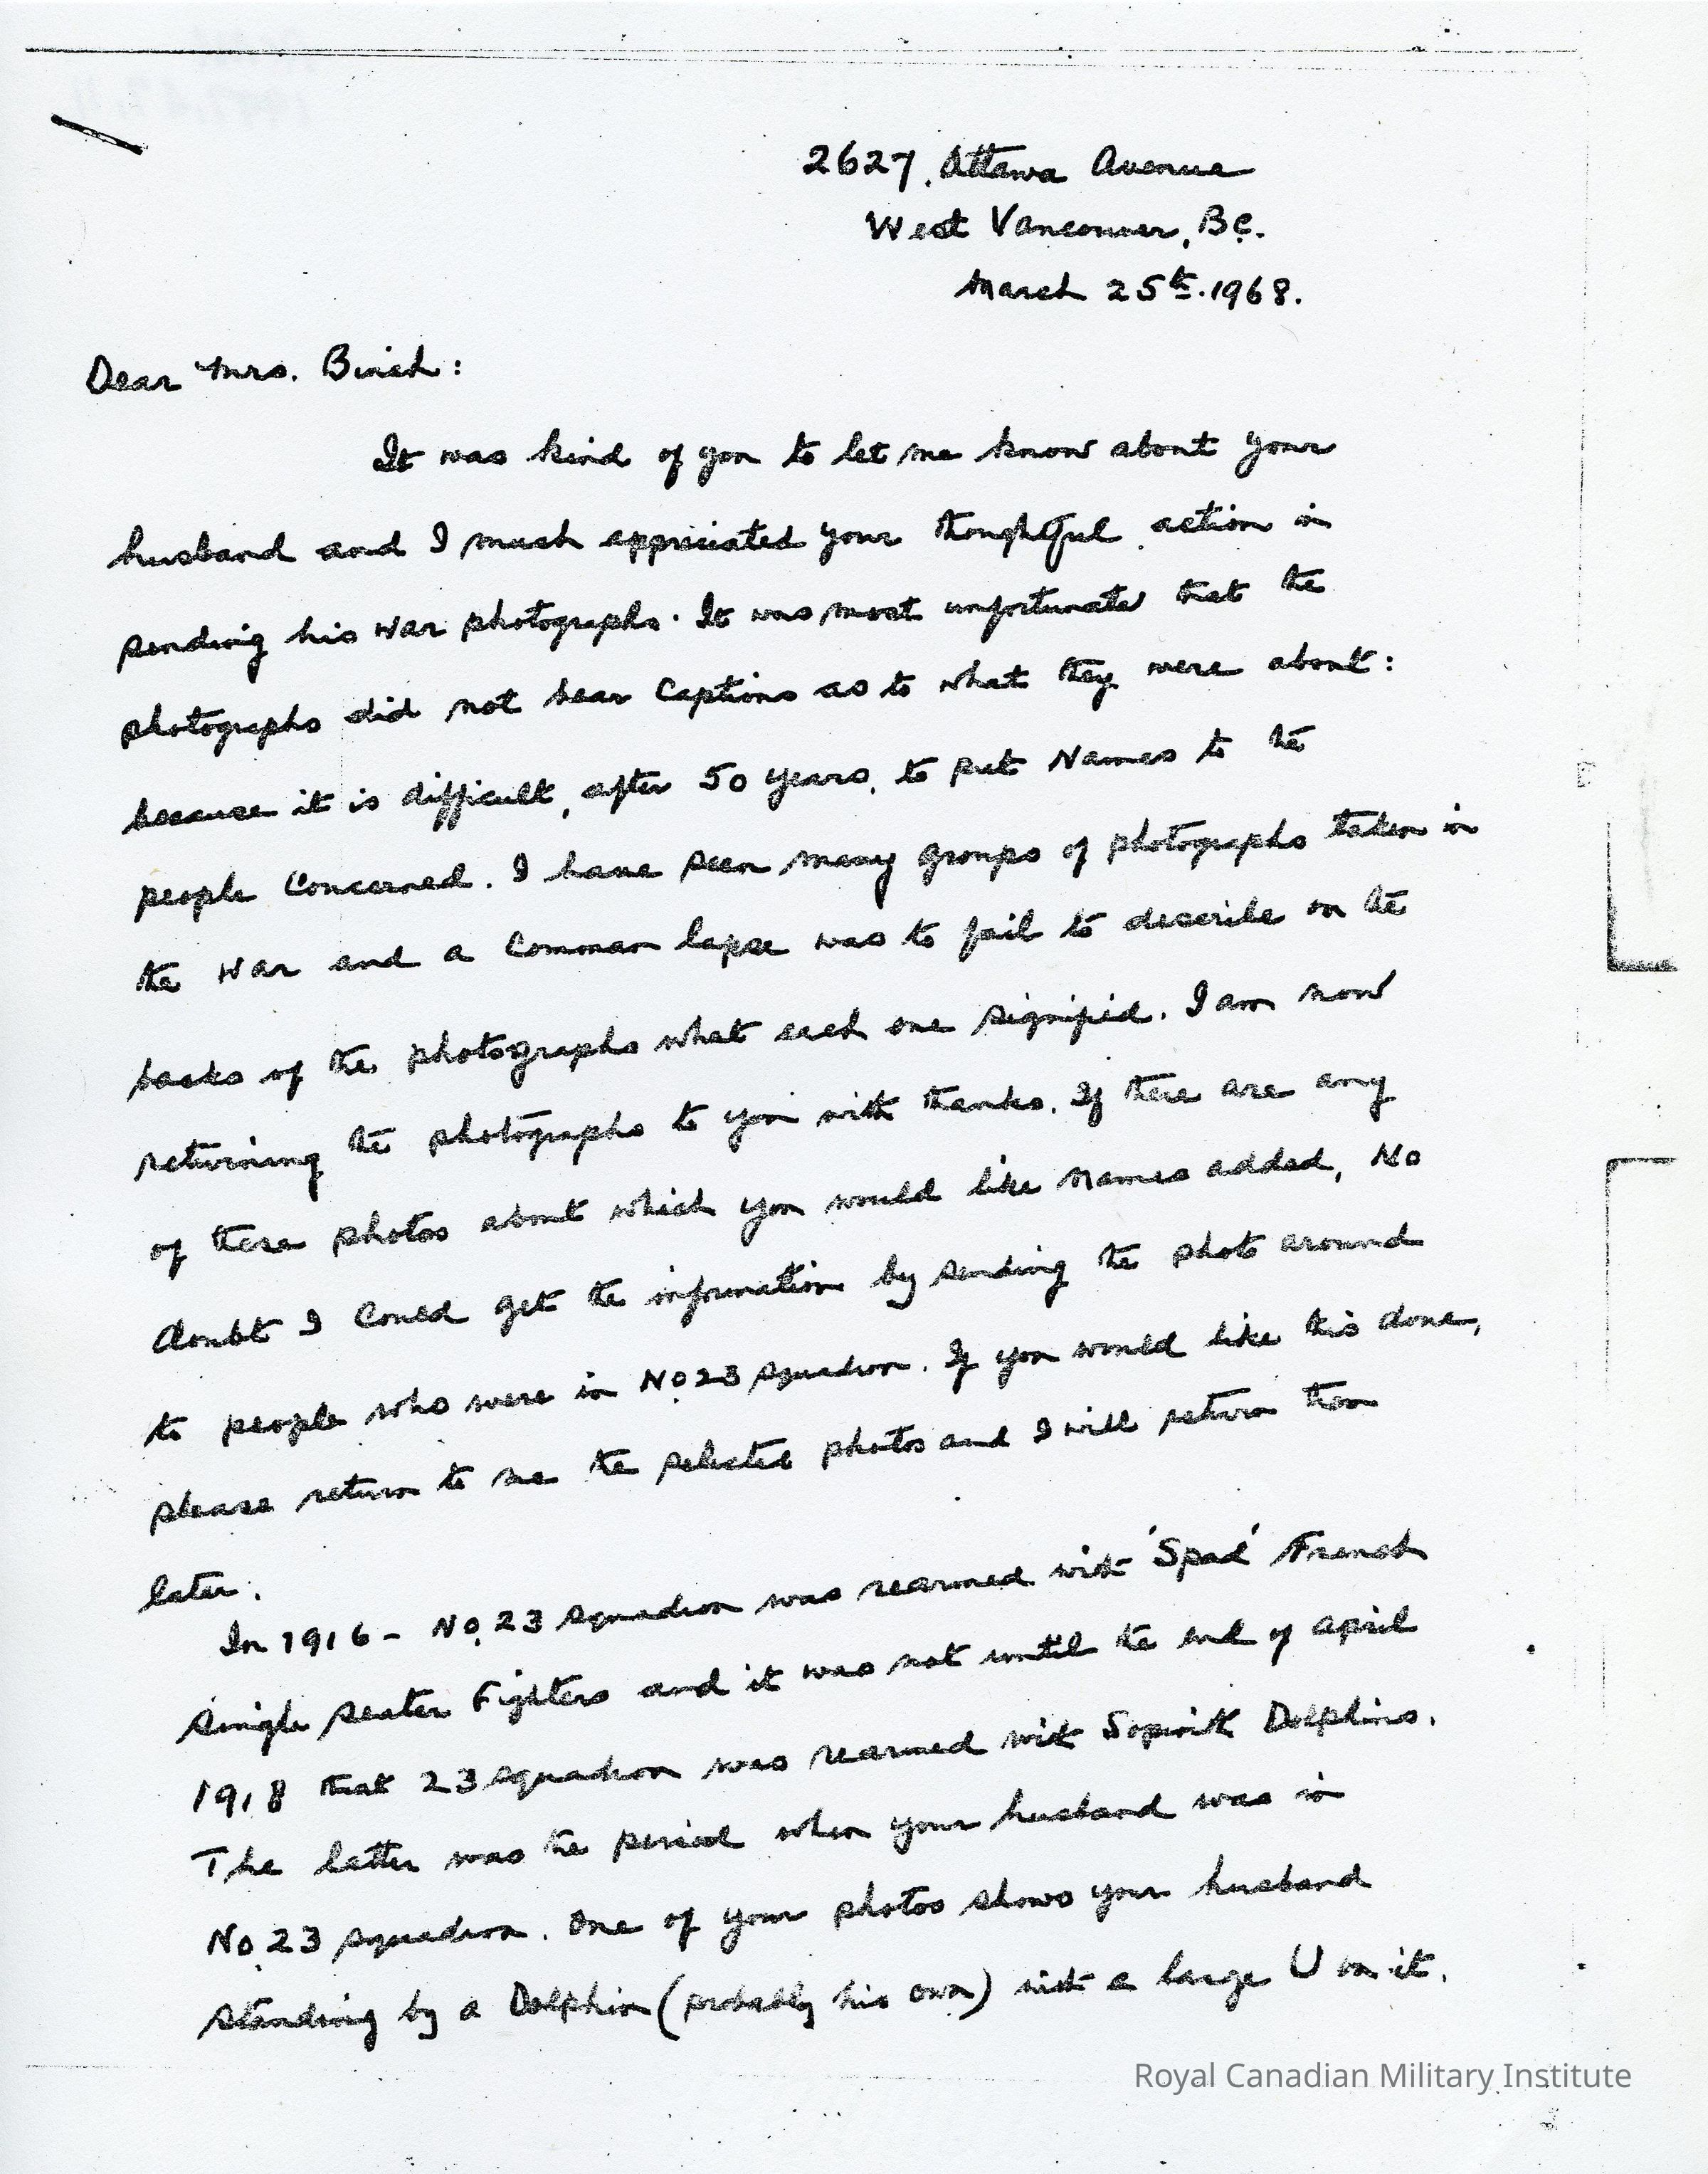 2627, Ottawa Avenue
West Vancouver, B.C.
March 25th. 1968.
Dear Mrs. Birch:
It was kind of you to let me know about your
husband and I much appreciated your thoughtful action in
sending his war photographs. It was most unfortunate that the
photographs did not bear Captions as to what they were about:
because it is difficult, after 50 years, to put Names to the
people Concerned. I have seen many groups of photographs taken in
the War and a Common lapse was to fail to describe on the
backs of the photographs what each one signified. I am now
returning the photographs to you with thanks. If there are any
of these photos about which you would like names added, No
doubt I Could get the information by sending the photo around
to people who were in No 23 Squadron. If you would like this done,
please return to me the selected photos and I will return them
later.
In 1916 - No. 23 Squadron was rearmed with 'Spad' French
single seater Fighters and it was not until the end of April
1918 that 23 Squadron was rearmed with Sopwith Dolphins.
The latter was the period when your husband was in
No. 23 Squadron. One of your photos shows your husband
standing by a Dolphin (probably his own) with a large U on it.
Royal Canadian Military Institute